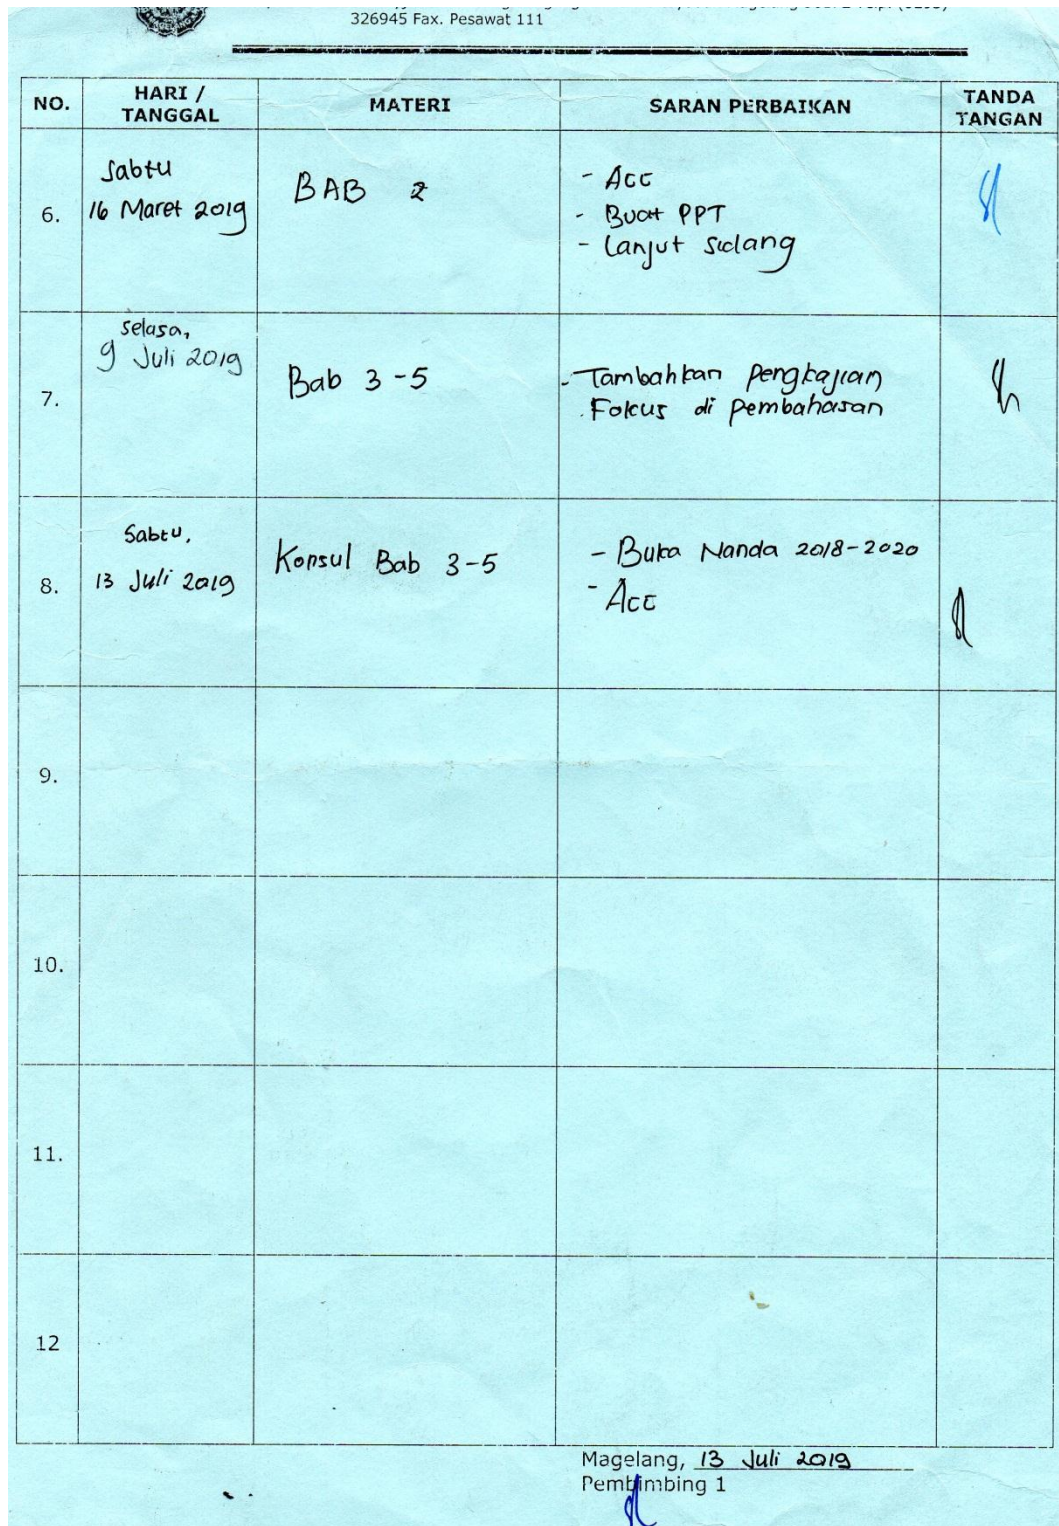 326945 Fax. Pesawat 111
NO. HARI / TANGGAL MATERI SARAN PERBAIKAN TANDA TANGAN
6. Sabtu
16 Maret 2019
BAB 2
- Acc
- Buat PPT
- Lanjut sidang
7. Selasa,
9 Juli 2019
Bab 3-5
- Tambahkan pengkajian
. Fokus di pembahasan
8. Sabtu,
13 Juli 2019
Konsul Bab 3-5
- Buka Nanda 2018-2020
- Acc
9.
10.
11.
12
Magelang, 13 Juli 2019
Pembimbing 1